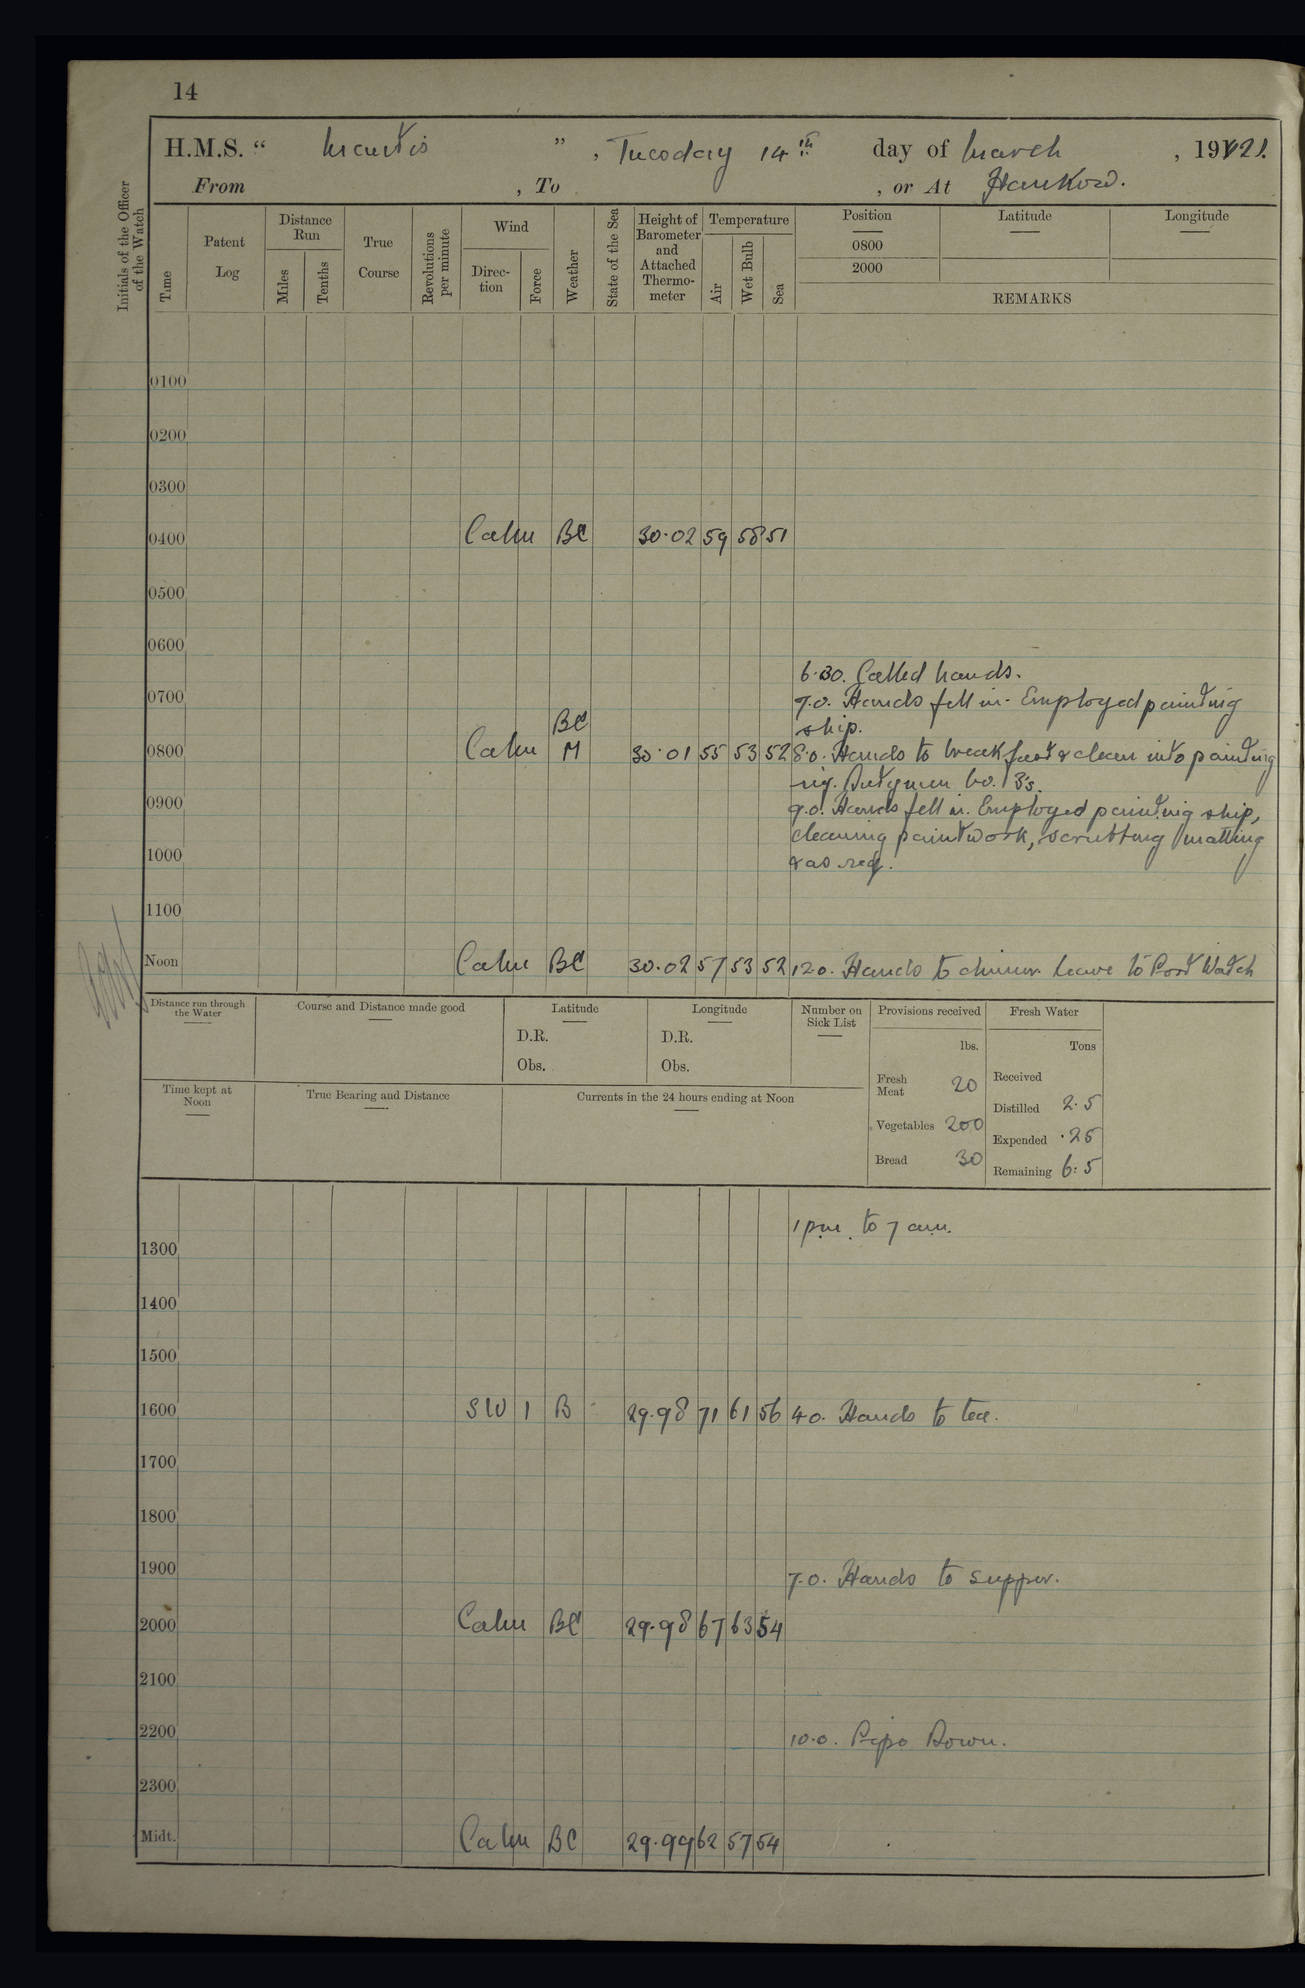 14
H.M.S. " Mantis ", Tuesday 14th day of March, 19121.
From , To , or At Hankow.
Initials of the Officer of the Watch
Time
Patent Log
Distance Run
Miles
Tenths
True Course
Revolutions per minute
Wind
Direc-tion
Force
Weather
State of the Sea
Height of Barometer and Attached Thermo-meter
Temperature
Air
Wet Bulb
Sea
Position
0800
2000
Latitude
Longitude
REMARKS
0100
0200
0300
0400 Calm BC 30.02 59 58 51
0500
0600
6.30. Called hands.
0700 7.0. Hands fell in. Employed painting
BC ship.
0800 Calm M 30.01 55 53 52 8.0. Hands to breakfast & clean into painting
rig. Dutymen No. 3's.
0900 9.0. Hands fell in. Employed painting ship,
cleaning paintwork, scrubbing matting
1000 & as req.
1100
Noon Calm BC 30.02 57 53 52 12.0. Hands to dinner leave to Port Watch
Distance run through the Water
Course and Distance made good
Latitude
D.R.
Obs.
Longitude
D.R.
Obs.
Number on Sick List
Provisions received
lbs.
Fresh Meat 20
Vegetables 200
Bread 30
Fresh Water
Tons
Received
Distilled 2.5
Expended .25
Remaining 6.5
Time kept at Noon
True Bearing and Distance
Currents in the 24 hours ending at Noon
1 pm. to 7 am.
1300
1400
1500
1600 SW 1 B 29.98 71 61 56 4.0. Hands to tea.
1700
1800
1900 7.0. Hands to supper.
2000 Calm BC 29.98 67 63 54
2100
2200 10.0. Pipe Down.
2300
Midt. Calm BC 29.99 62 57 54